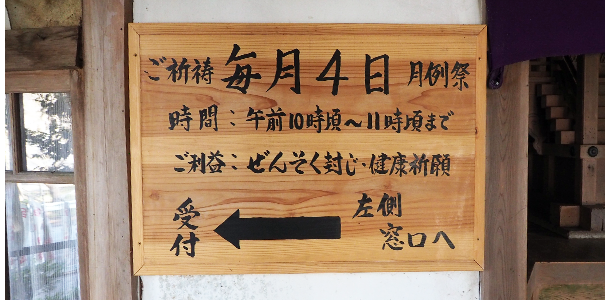 ご祈祷 毎月4日 月例祭
時間：午前10時頃～11時頃まで
ご利益：ぜんそく封じ・健康祈願
受付
左側
窓口へ